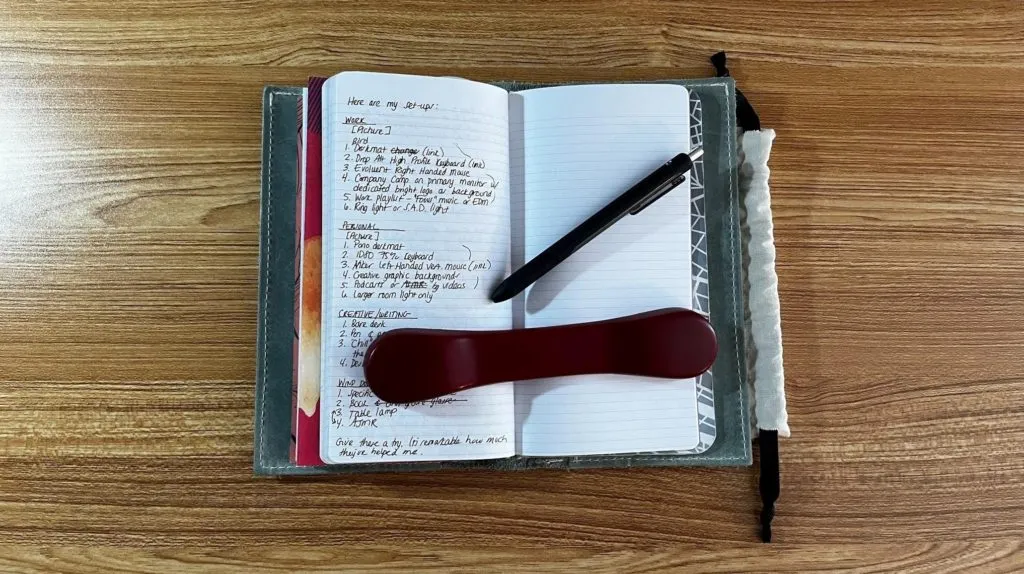 Here are my set-ups:
WORK
[Picture]
Bird
1. Deskmat change (link)
2. Drop Alt High Profile Keyboard (link)
3. Evoluent Right Handed Mouse
4. Company Camp on primary monitor w/
dedicated bright logo as background
5. Work playlist - "Focus" music or EDM
6. Ring light or S.A.D. light
PERSONAL
[Picture]
1. Pono deskmat
2. 75% Keyboard
3. Anker Left Handed Vert. mouse (link)
4. Creative graphic background
5. Podcasts or videos
6. Larger room light only
CREATIVE/WRITING
1. Bare desk
2. Pen &
3. "Chill
the
4.
WIND
1. Specific
2. Book
3. Table lamp
4. ASMR
Give these a try. It's remarkable how much
they've helped me.